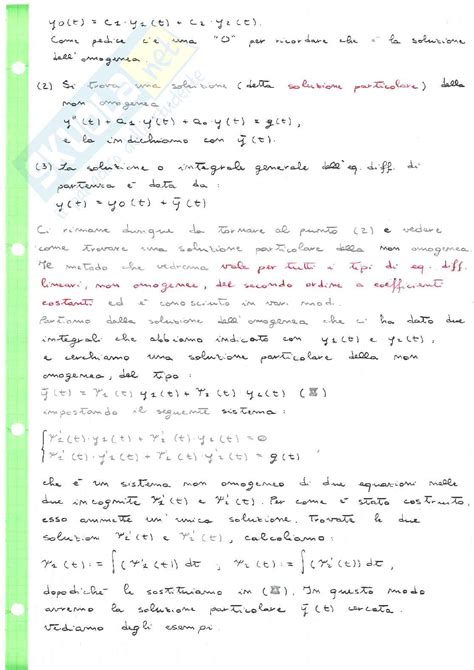 y0(t) = C1·y1(t) + C2·y2(t).
Come pedice c'è una "0" per ricordare che è la soluzione
dell'omogenea
(2) Si trova una soluzione (detta soluzione particolare) della
non omogenea
y''(t) + a1·y'(t) + a0·y(t) = g(t),
e la indichiamo con ȳ(t).
(3) La soluzione o integrale generale dell'eq. diff. di
partenza è data da:
y(t) = y0(t) + ȳ(t)
Ci rimane dunque da tornare al punto (2) e vedere
come trovare una soluzione particolare della non omogenea.
Il metodo che vedremo vale per tutti i tipi di eq. diff.
lineari, non omogenee, del secondo ordine a coefficienti
costanti ed è conosciuto in vari modi.
Partiamo dalla soluzione dell'omogenea che ci ha dato due
integrali che abbiamo indicato con y1(t) e y2(t),
e cerchiamo una soluzione particolare della non
omogenea, del tipo:
ȳ(t) = γ1(t) y1(t) + γ2(t) y2(t)
impostando il seguente sistema:
γ1'(t)·y1(t) + γ2'(t)·y2(t) = 0
γ1'(t)·y1'(t) + γ2'(t)·y2'(t) = g(t)
che è un sistema non omogeneo di due equazioni nelle
due incognite γ1'(t) e γ2'(t). Per come è stato costruito,
esso ammette un'unica soluzione. Trovate le due
soluzioni γ1'(t) e γ2'(t), calcoliamo:
γ1(t) := ∫(γ1'(t)) dt, γ2(t) := ∫(γ2'(t)) dt,
dopodiché le sostituiamo in In questo modo
avremo la soluzione particolare ȳ(t) cercata.
Vediamo degli esempi.